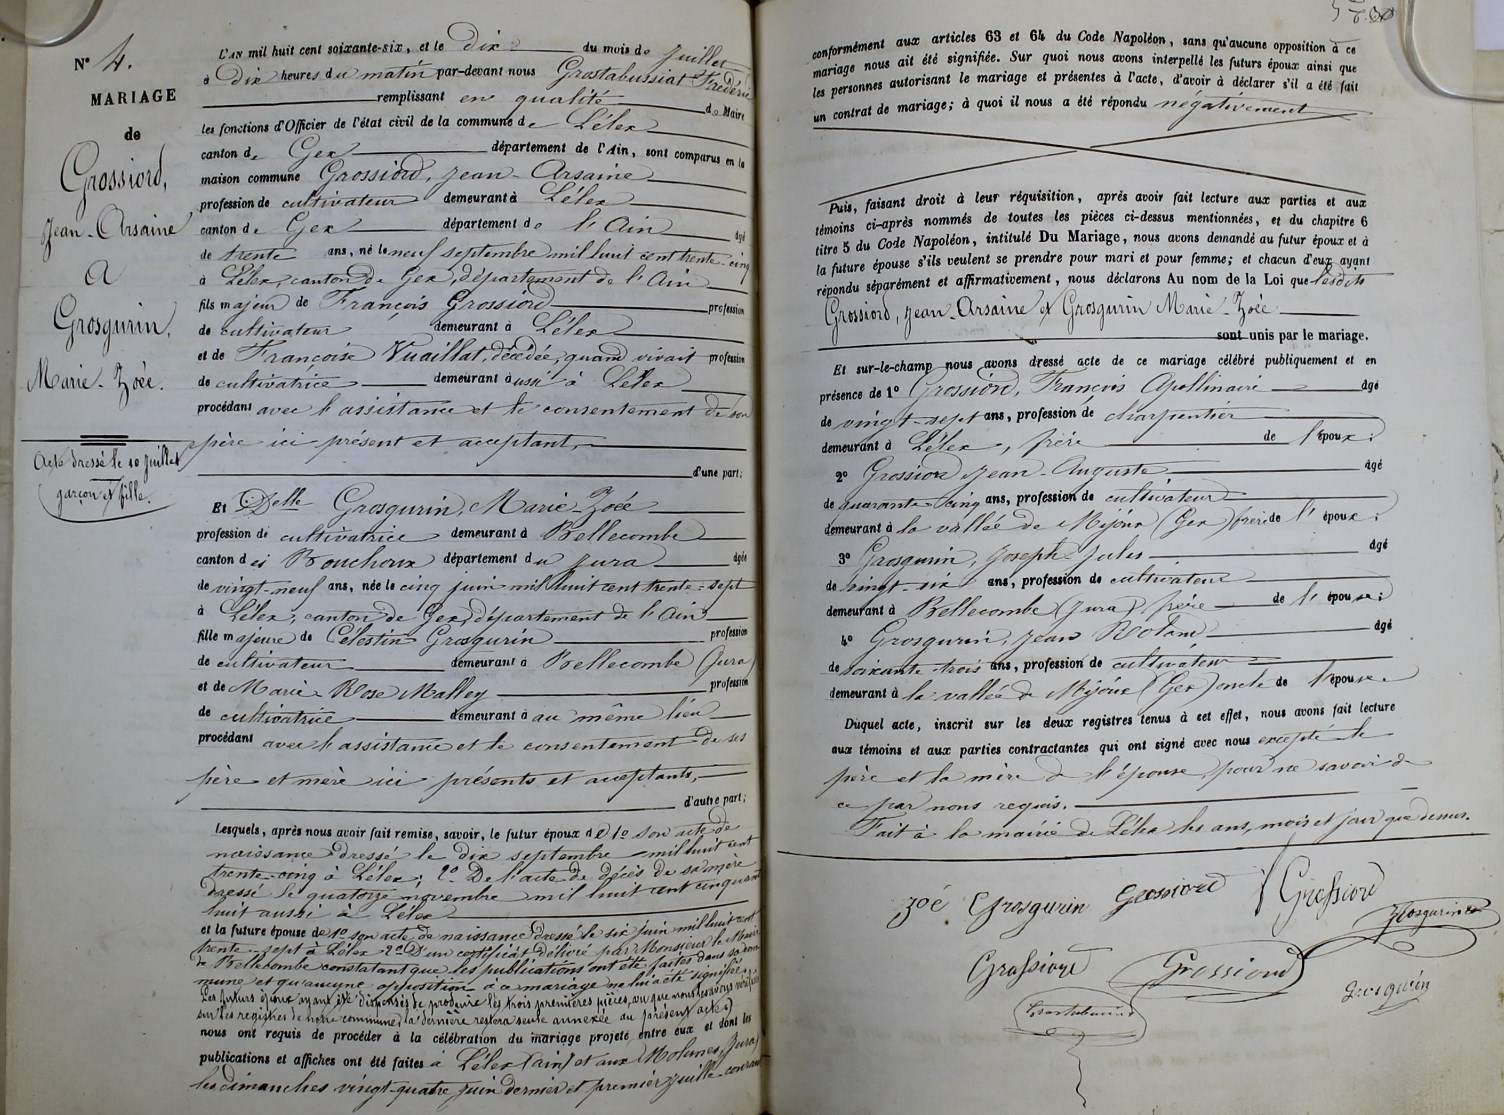 N° 4.
MARIAGE
de
Grossiord,
Jean-Arsaine
a
Grosgurin,
Marie-Zoée.
Acte dressé le 10 juillet
garçon et fille.
L'AN mil huit cent soixante-six, et le dix du mois de juillet
à dix heures du matin par-devant nous Grostabussiat Frédéric
remplissant en qualité de Maire
les fonctions d'Officier de l'état civil de la commune de Lélex
canton de Gex département de l'Ain, sont comparus en la
maison commune Grossiord, Jean-Arsaine
profession de cultivateur demeurant à Lélex
canton de Gex département de l'Ain âgé
de trente ans, né le neuf septembre mil huit cent trente-cinq
à Lélex, canton de Gex, département de l'Ain
fils majeur de François Grossiord profession
de cultivateur demeurant à Lélex
et de Françoise Vuaillat, décédée, quand vivait profession
de cultivatrice demeurant aussi à Lélex
procédant avec l'assistance et le consentement de son
père ici présent et acceptant,
d'une part;
Et Delle Grosgurin, Marie-Zoée
profession de cultivatrice demeurant à Bellecombe
canton des Bouchoux département du Jura âgée
de vingt-neuf ans, née le cinq juin mil huit cent trente-sept
à Lélex, canton de Gex, département de l'Ain
fille majeure de Célestin Grosgurin profession
de cultivateur demeurant à Bellecombe (Jura)
et de Marie Rose Malley profession
de cultivatrice demeurant à au même lieu
procédant avec l'assistance et le consentement de ses
père et mère ici présents et acceptants,
d'autre part;
Lesquels, après nous avoir fait remise, savoir, le futur époux de 1° son acte de
naissance dressé le dix septembre mil huit cent
trente-cinq à Lélex; 2° De l'acte de décès de sa mère
dressé le quatorze novembre mil huit cent cinquante
huit aussi à Lélex
et la future épouse de 1° son acte de naissance dressé le six juin mil huit cent
trente-sept à Lélex 2° D'un certificat délivré par Monsieur le Maire
de Bellecombe constatant que les publications ont été faites dans sa com
mune et qu'aucune opposition à ce mariage ne lui a été signifiée.
Les futurs époux ayant été dispensés de produire les trois premières pièces, vu que nous les avons vérifiées
sur les registres de notre commune, la dernière restera seule annexée au présent acte,
nous ont requis de procéder à la célébration du mariage projeté entre eux et dont les
publications et affiches ont été faites à Lélex (ain) et aux Molunes (Jura)
les dimanches vingt-quatre juin dernier et premier juillet courant
conformément aux articles 63 et 64 du Code Napoléon, sans qu'aucune opposition à ce
mariage nous ait été signifiée. Sur quoi nous avons interpellé les futurs époux ainsi que
les personnes autorisant le mariage et présentes à l'acte, d'avoir à déclarer s'il a été fait
un contrat de mariage; à quoi il nous a été répondu négativement
Puis, faisant droit à leur réquisition, après avoir fait lecture aux parties et aux
témoins ci-après nommés de toutes les pièces ci-dessus mentionnées, et du chapitre 6
titre 5 du Code Napoléon, intitulé Du Mariage, nous avons demandé au futur époux et à
la future épouse s'ils veulent se prendre pour mari et pour femme; et chacun d'eux ayant
répondu séparément et affirmativement, nous déclarons Au nom de la Loi que lesdits
Grossiord, Jean-Arsaine et Grosgurin Marie-Zoée
sont unis par le mariage.
Et sur-le-champ nous avons dressé acte de ce mariage célébré publiquement et en
présence de 1° Grossiord, François Apollinaire âgé
de vingt-sept ans, profession de charpentier
demeurant à Lélex, frère de l'époux;
2° Grossiord Jean-Auguste âgé
de quarante-cinq ans, profession de cultivateur
demeurant à la vallée de Mijoux (Gex) frère de l'époux;
3° Grosgurin, Joseph-Jules âgé
de vingt-six ans, profession de cultivateur
demeurant à Bellecombe (Jura), frère de l'épouse;
4° Grosgurin, Jean Roland âgé
de soixante-trois ans, profession de cultivateur
demeurant à la vallée de Mijoux (Gex) oncle de l'épouse.
Duquel acte, inscrit sur les deux registres tenus à cet effet, nous avons fait lecture
aux témoins et aux parties contractantes qui ont signé avec nous excepté le
père et la mère de l'épouse, pour ne savoir de
ce par nous requis.
Fait à la mairie de Lélex les ans, mois et jour que dessus.
zoé Grosgurin Grossiord Grossiord
Grosgurin
Grossiord Grossiord Grosgurin
Grostabussiat